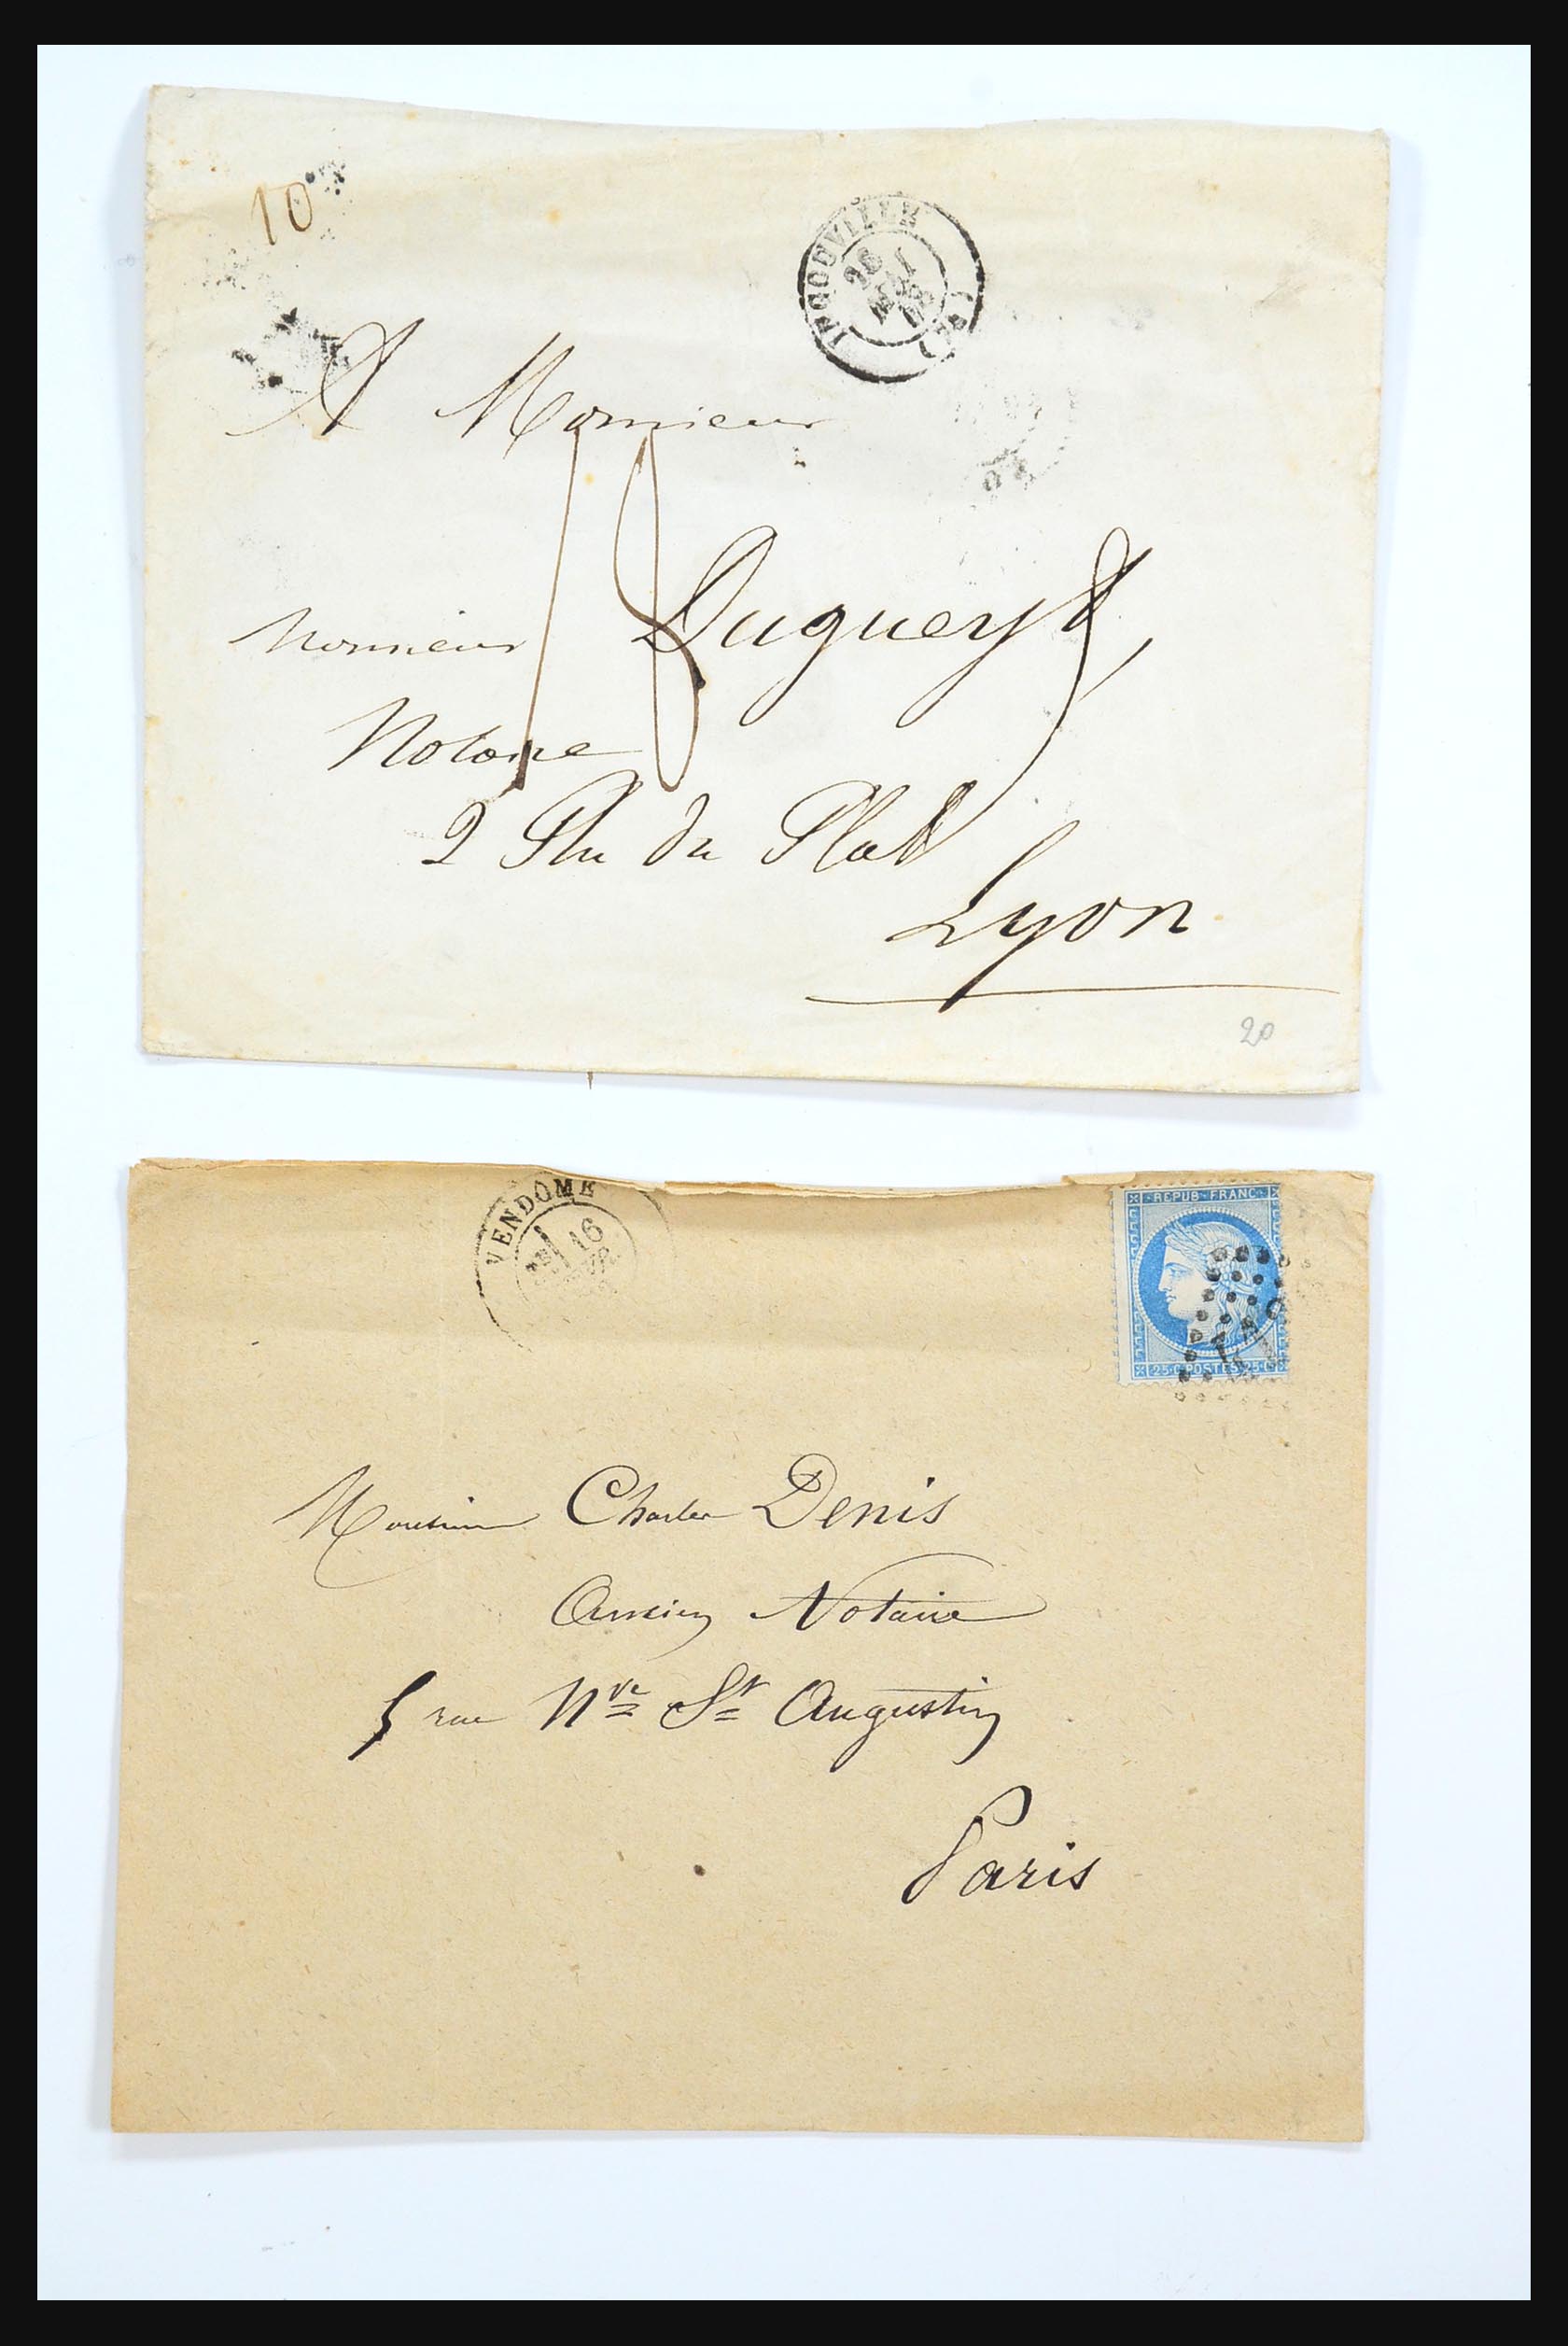 10
INGOUVILLE
28
A Monsieur
18
Monsieur Dugueyt,
Notaire
2 Rue du Plat
Lyon
20
VENDOME
16
REPUB FRANC
25 C POSTES 25 C
Monsieur Charles Denis
Ancien Notaire
5 rue Nve St Augustin
Paris